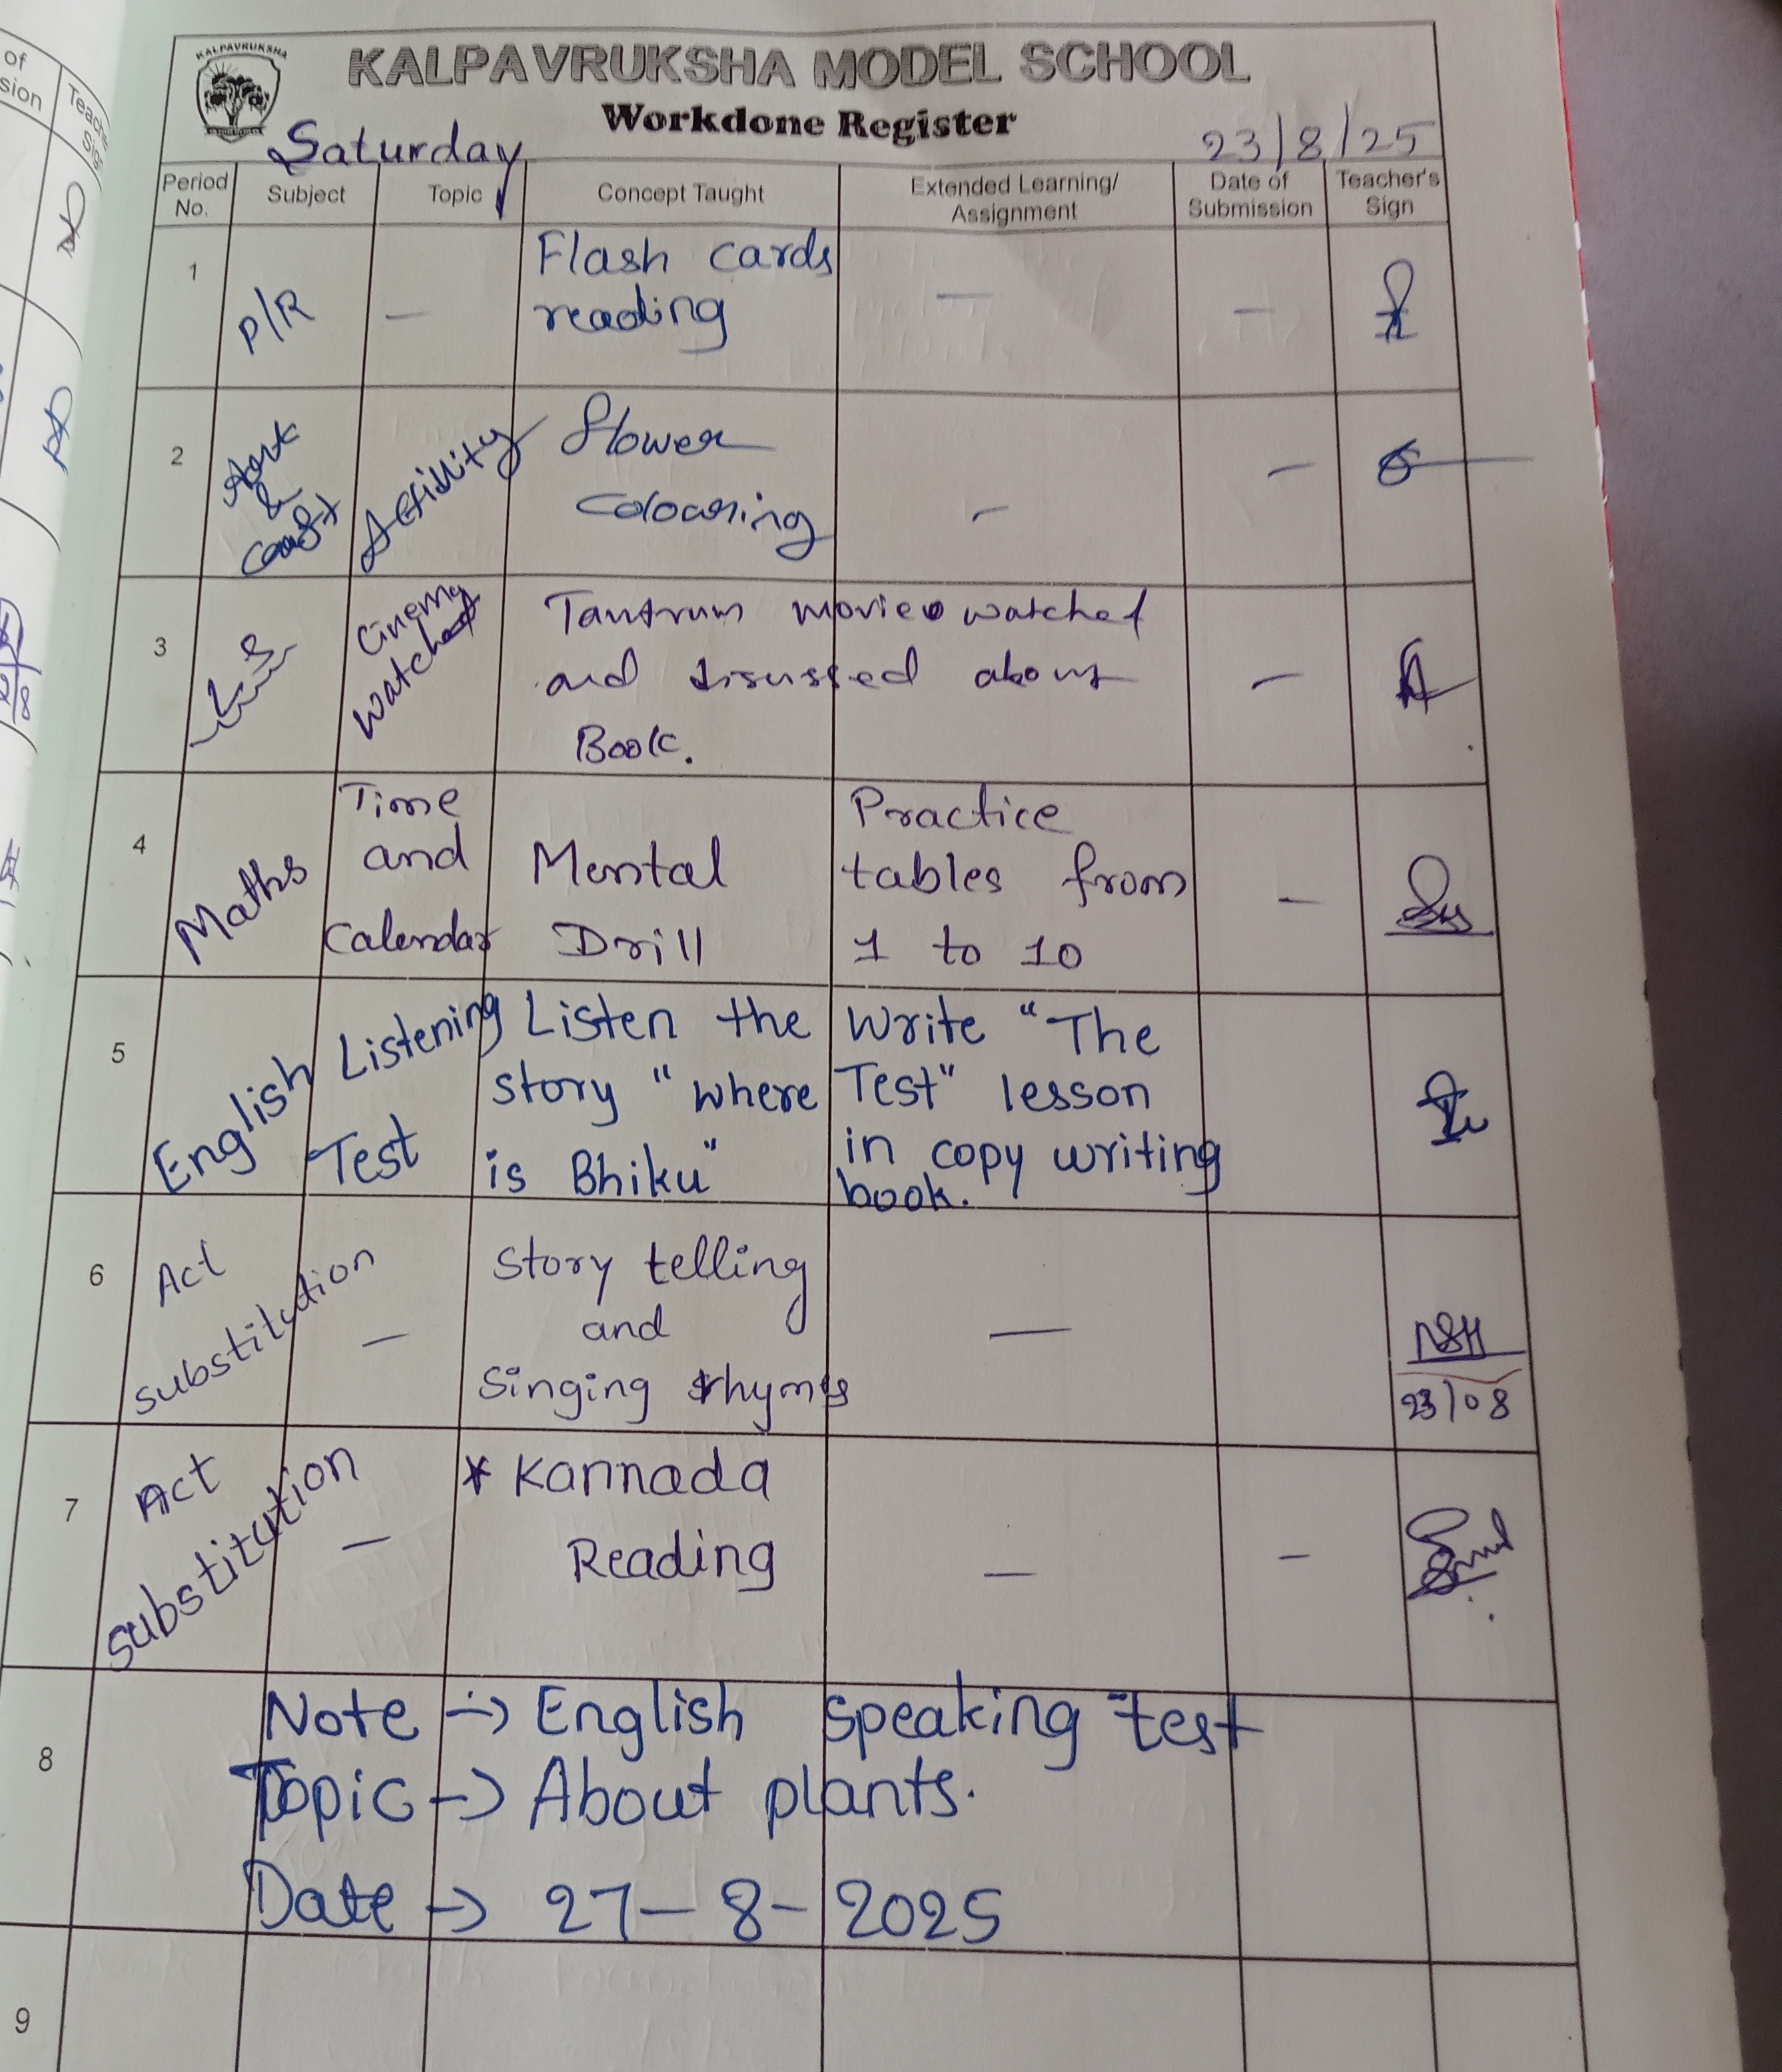 of
sion
Teache
Sig
KALPAVRUKSHA
KALPAVRUKSHA MODEL SCHOOL
Workdone Register
Saturday
23/8/25
Period No.
Subject
Topic
Concept Taught
Extended Learning/ Assignment
Date of Submission
Teacher's Sign
1
P/R
-
Flash cards
reading
-
-
2
&
Activity
Flower
colouring
-
-
3
Cinema
watched
Tantrum movie watched
and disussed about
Book.
-
4
Maths
Time
and
Calendar
Mental
Drill
Practice
tables from
1 to 10
-
5
English
Listening
Test
Listen the
story "where
is Bhiku"
Write "The
Test" lesson
in copy writing
book.
6
Act
substitution
-
Story telling
and
Singing rhymes
-
23/08
7
Act
substitution
-
* Kannada
Reading
-
-
8
Note -> English speaking test
Topic -> About plants.
Date -> 27-8-2025
9